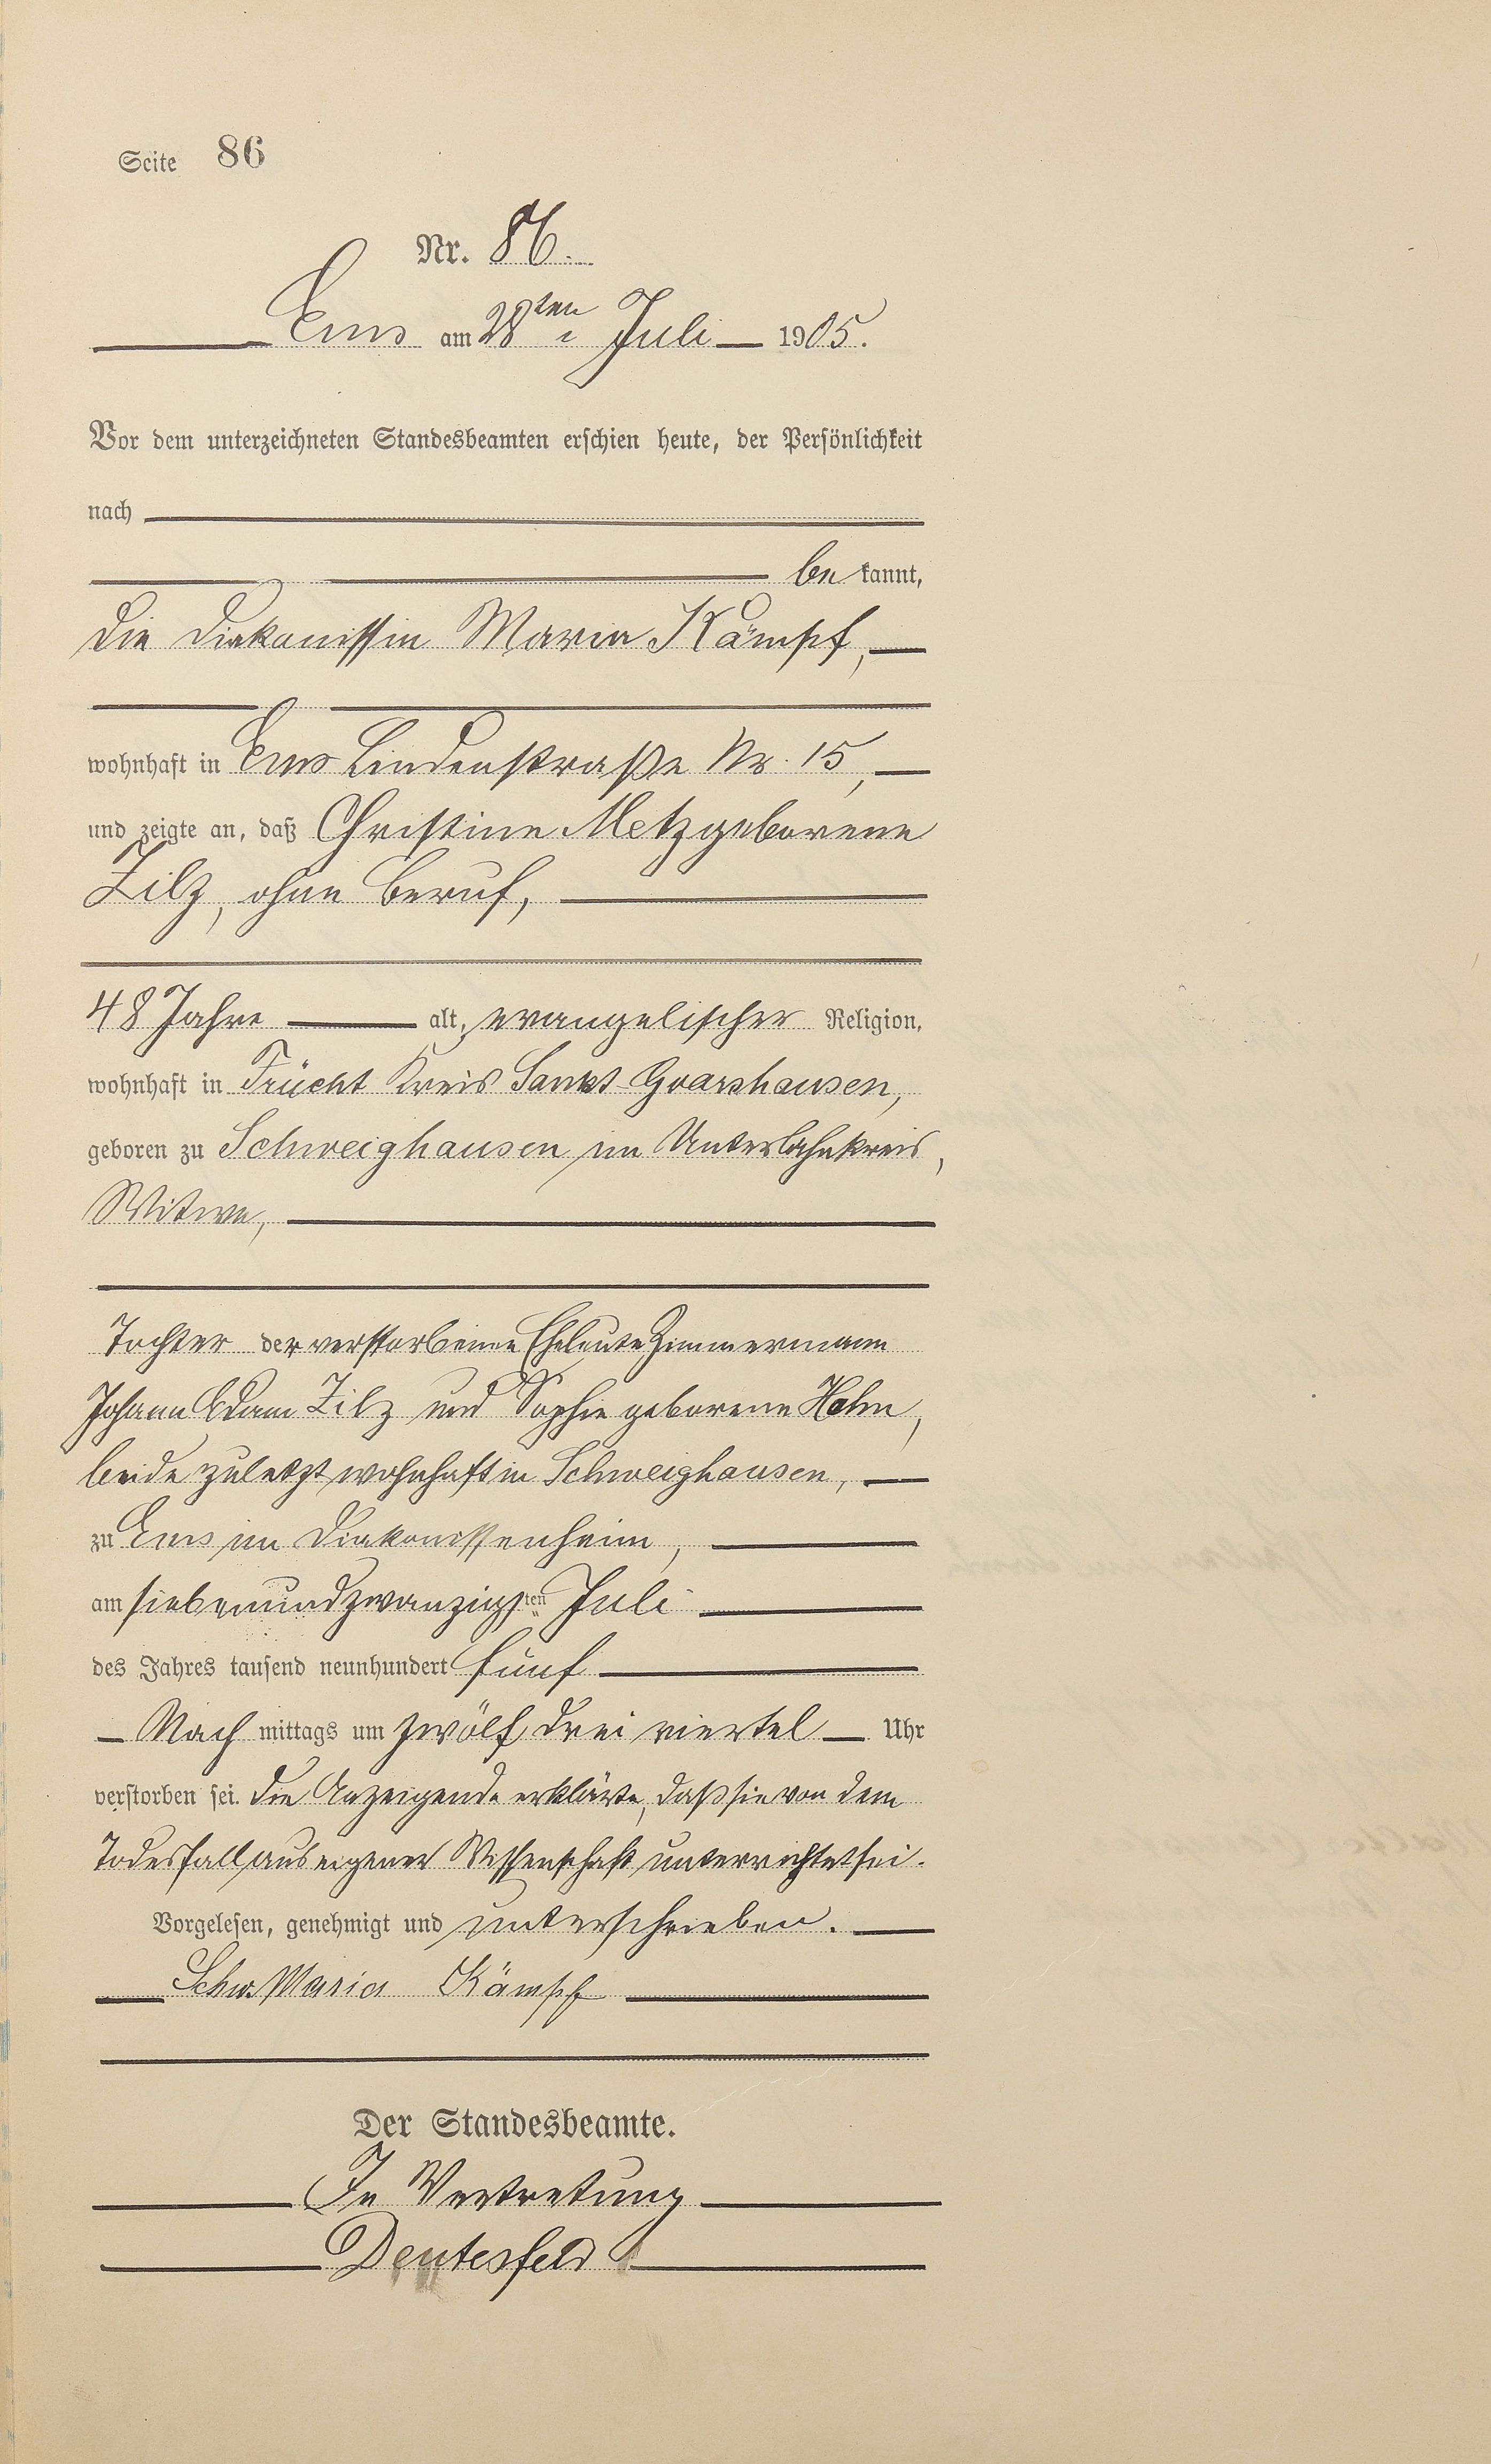 Seite 86
Nr. 86.
Ems am 28ten Juli 1905.
Vor dem unterzeichneten Standesbeamten erschien heute, der Persönlichkeit
nach
be kannt,
die Diakonissin Maria Kämpf,
wohnhaft in Ems Lindenstraße Nr. 15,
und zeigte an, daß Christine Metz geborene
Zilz, ohne Beruf,
48 Jahre alt, evangelischer Religion,
wohnhaft in Frücht Kreis Sankt Goarshausen,
geboren zu Schweighausen im Unterlahnkreis,
Witwe,
Tochter der verstorbenen Eheleute Zimmermann
Johann Adam Zilz und Sophie geborene Hahn,
beide zuletzt wohnhaft in Schweighausen,
zu Ems im Diakonissenheim,
am siebenundzwanzigsten Juli
des Jahres tausend neunhundert fünf
Nach mittags um zwölf drei viertel Uhr
verstorben sei. Die Anzeigende erklärte, daß sie von dem
Todesfall aus eigener Wissenschaft unterrichtet sei.
Vorgelesen, genehmigt und unterschrieben.
Schw. Maria Kämpf
Der Standesbeamte.
In Vertretung
Deutesfeld